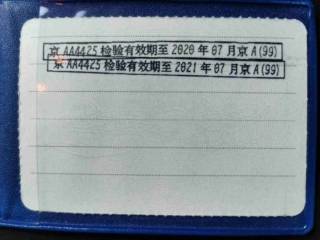 京 AA4425 检验有效期至 2020 年 07 月京 A(99)
京 AA4425 检验有效期至 2021 年 07 月京 A(99)